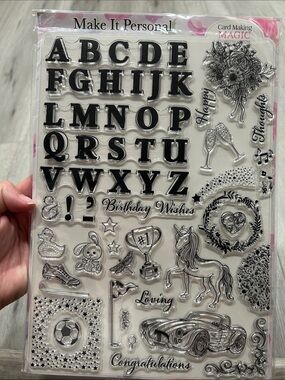 Make It Personal
Card Making
MAGIC
A B C D E
F G H I J K
L M N O P
Q R S T U
V W X Y Z
& ! ?
Birthday Wishes
Happy
Thoughts
#1
Loving
Congratulations